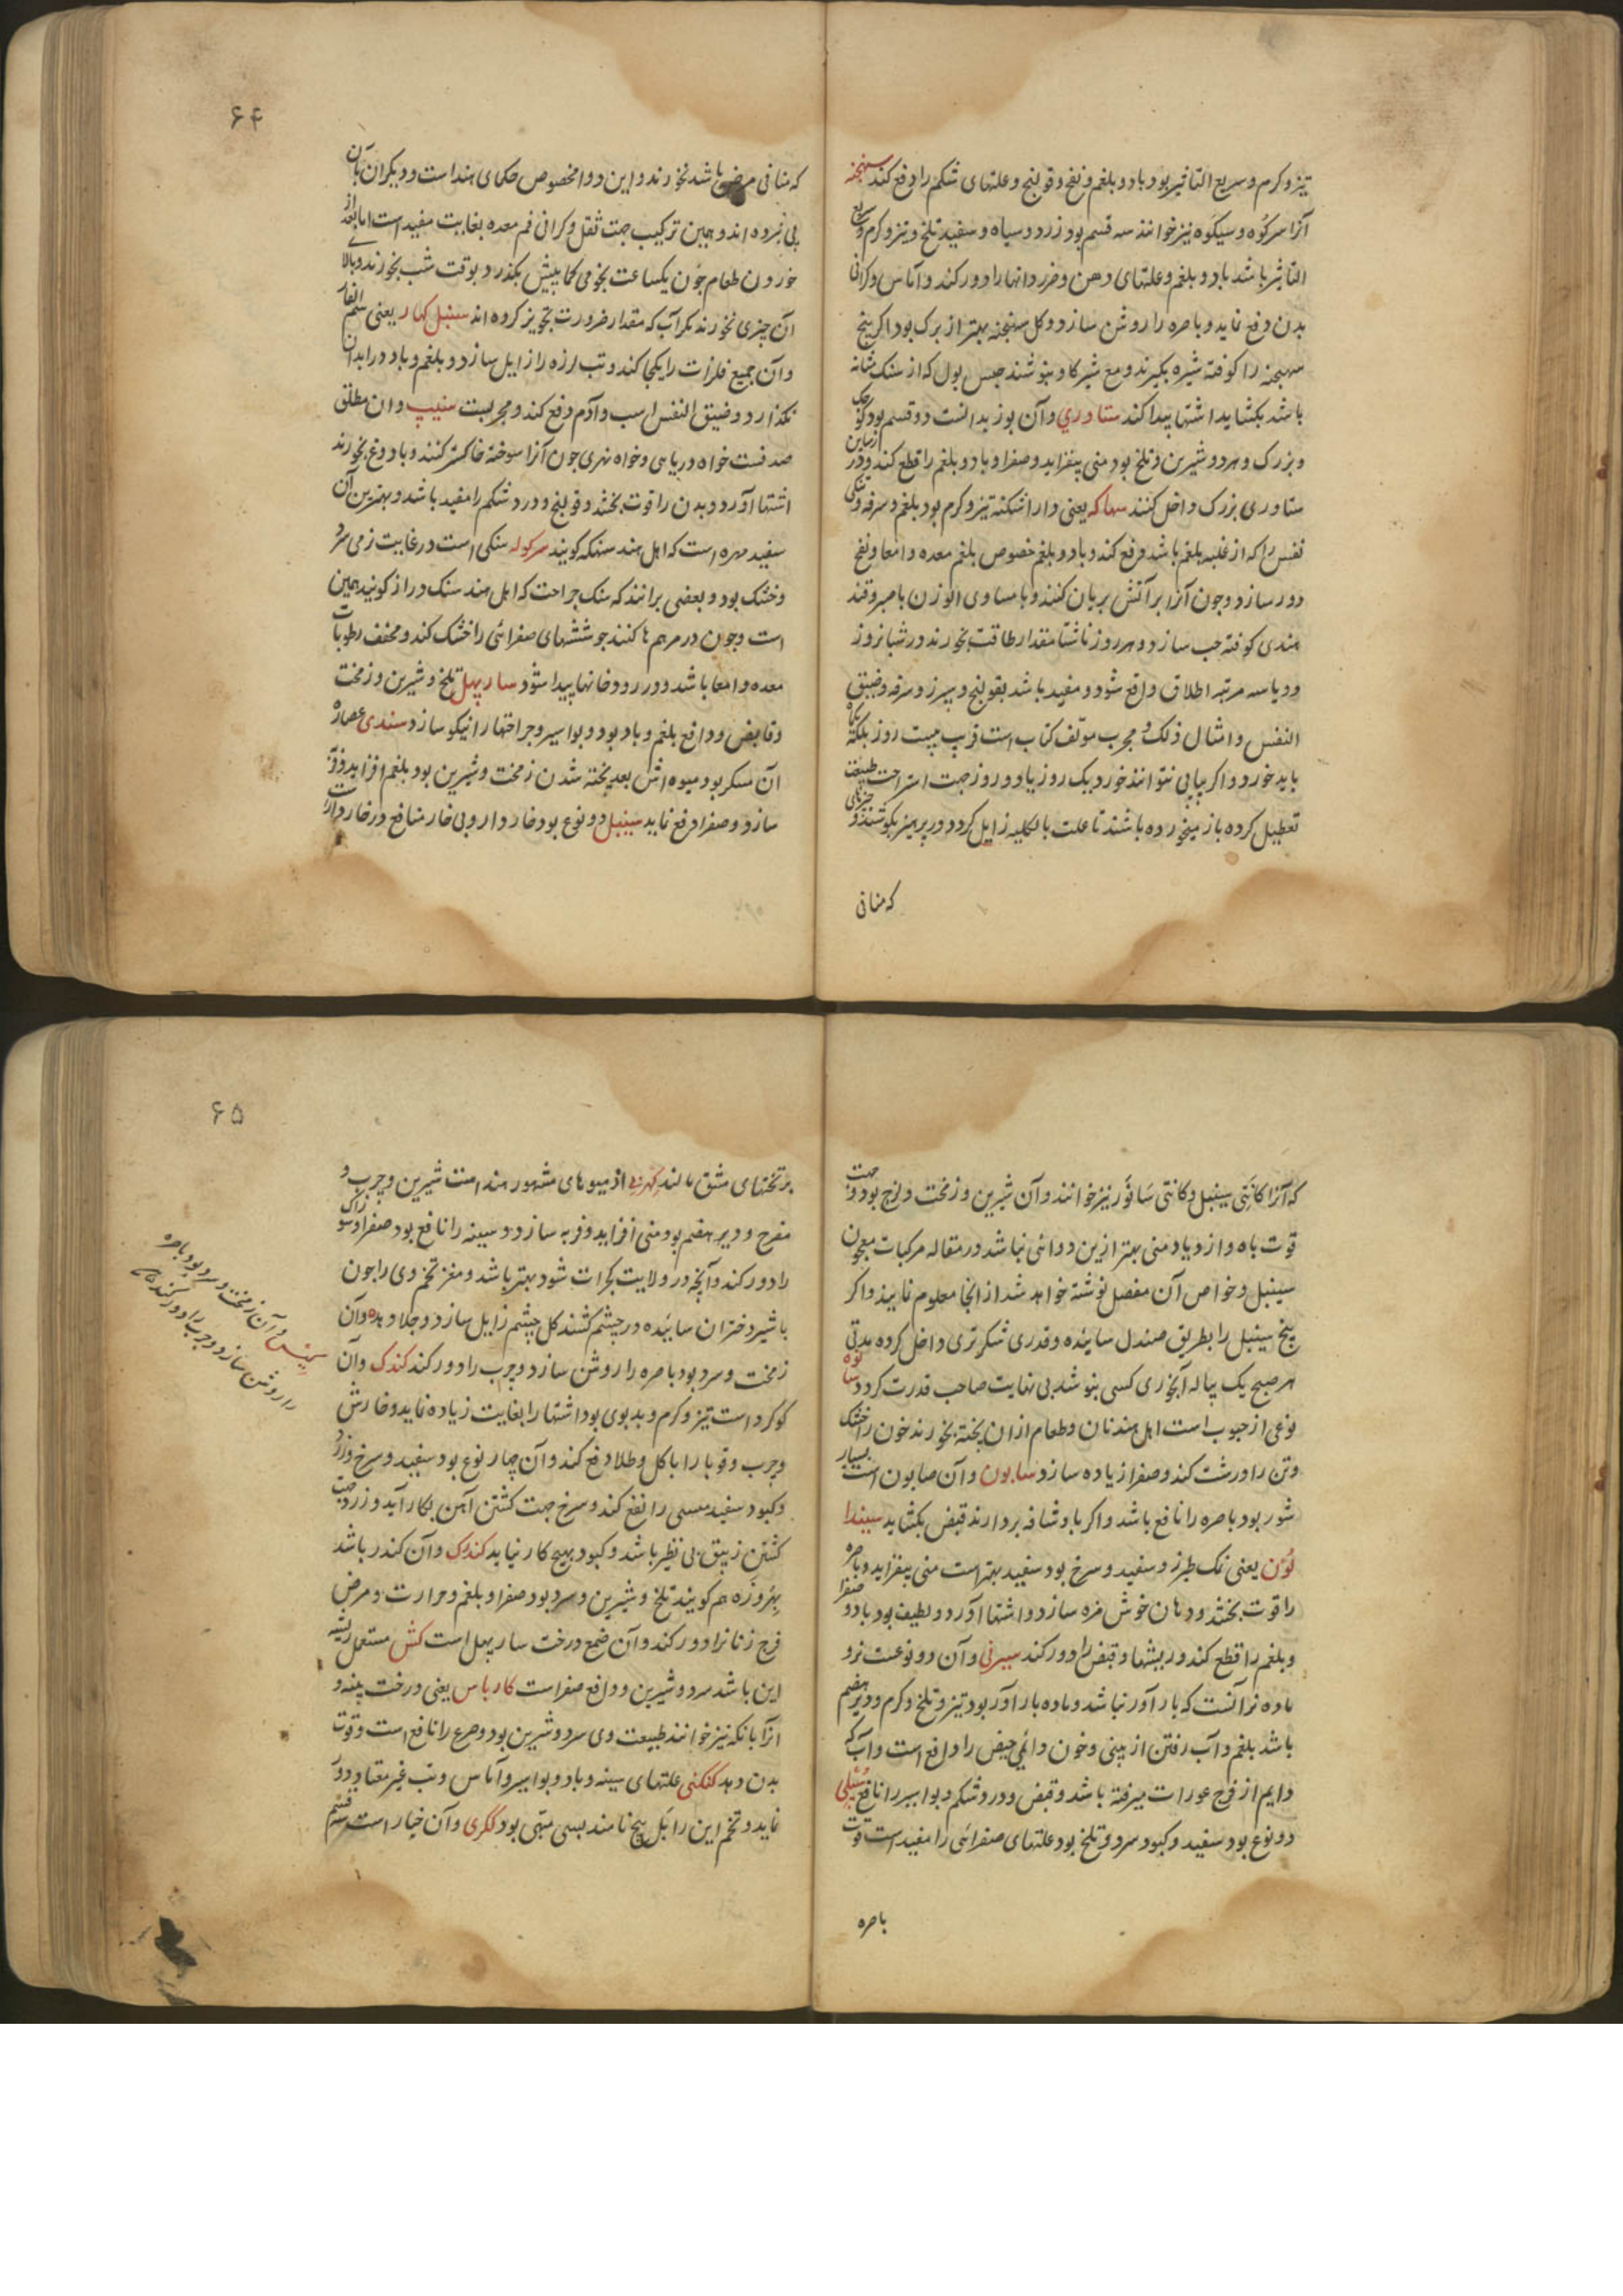 تیز و کرم و سریع التاثیر بود باد و بلغم و نفخ و قولنج و علتهای شکم را دفع کند سهنجنه
آنرا سرکوه و سیکوه نیز خوانند سه قسم بود زرد و سیاه و سفید تلخ و تیز و کرم و سریع
التاثیر باشد باد و بلغم و علتهای دهن و ضرر دانها را دور کند و آماس و کرانی
بدن دفع نماید و باصره را روشن سازد و کل سهنجنه بهتر از برک بود اکر بیخ
سهنجنه را کوفته شیره بکیرند و مع شیر کاو بنوشند حبس بول که از سنک مثانه
باشد بکشاید اشتها پیدا کند ستاوری و آن بوزیدانست دو قسم بود کوچک
و بزرک و هر دو شیرین و تلخ بود منی بیفزاید و صفرا و باد و بلغم را قطع کند و در
ستاوری بزرک داخل کنند سهاکه یعنی دارا شکنه تیز و کرم بود بلغم و سرفه و تنکی
نفس را که از غلبه بلغم باشد دفع کند و باد و بلغم خصوص بلغم معده و امعا و نفخ
دور سازد و چون آنرا بر آتش بریان کنند و با مساوی الوزن با صبر و قند
هندی کوفته حب سازد و هر روز ناشتا مقدار طاقت بخورند در شبانروز
دو یا سه مرتبه اطلاق واقع شود و مفید باشد بقولنج و سپرز و سرفه و ضیق
النفس و امثال ذلک و مجرب مولف کتاب است قریب بیست روز بلکه یکماه
باید خورد و اکر پیاپی نتوانند خورد یک روز یا دو روز جهت استراحت طبیعت
تعطیل کرده باز میخورده باشند تا علت بالکلیه زایل کردد و در پرهیز بکوشند و چیزهای
که منافی
۶۴
که منافی مرض باشد نخورند و این دوا مخصوص حکمای هند است و دیکران بآن
پی نبرده اند و همین ترکیب جهت ثقل و کرانی فم معده بغایت مفید است اما بعد از
خوردن طعام چون یکساعت نجومی کما بیش بکذرد بوقت شب بخورند و بالای
آن چیزی نخورند مکر آب که مقدار ضرورت تجویز کرده اند سنبل کهار یعنی سم الفار
و آن جمیع فلزات را یکجا کند و تب لرزه را زایل سازد و بلغم و باد در ابدان
نکذارد و ضیق النفس اسب و آدم دفع کند و مجربست سیپ و ان مطلق
صدفست خواه دریاهی و خواه نهری چون آنرا سوخته خاکستر کنند و با دوغ بخورند
اشتها آورد و بدن را قوت بخشد و قولنج و درد شکم را مفید باشد و بهترین آن
سفید مهره است که اهل هند سنکه کویند سرکوله سنکی است در غایت نرمی سرد
و خشک بود و بعضی برانند که سنک جراحت که اهل هند سنک دراز کویند همین
است و چون در مرهم ها کنند جوششهای صفرائی را خشک کند و مجفف رطوبات
معده و امعا باشد و در رودخانها پیدا شود سار پهل تلخ و شیرین و زمخت
و قابض و دافع بلغم و باد بود و بواسیر و جراحتها را نیکو سازد سندی عصاره
آن مسکر بود میوه اش بعد پخته شدن زمخت و شیرین بود بلغم افزاید و قوت
سازد و صفرا دفع نماید سینبل دو نوع بود خاردار و بی خار منافع در خاردار است
که آنرا کانتی سینبل و کانتی ساور نیز خوانند و آن شیرین و زمخت و لزج بود و جهت
قوت باه و ازدیاد منی بهتر ازین دوائی نباشد در مقاله مرکبات معجون
سینبل و خواص آن مفصل نوشته خواهد شد از انجا معلوم نمایند و اکر
بیخ سینبل را بطریق صندل سائیده و قدری شکر تری داخل کرده مدتی
هر صبح یک پیاله آبخوری کسی بنوشد بی نهایت صاحب قدرت کردد
نوعی از حبوب است اهل هند نان و طعام از ان پخته بخورند خون را خشک
و تن را درشت کند و صفرا زیاده سازد سابون و آن صابون است بسیار
شور بود باصره را نافع باشد و اکر با و شافه بردارند قبض بکشاید سیندا
لون یعنی نمک طبرزد سفید و سرخ بود سفید بهتر است منی بیفزاید و باصره
را قوت بخشد و دهان خوش مزه سازد و اشتها آورد و لطیف بود باد و صفرا
و بلغم را قطع کند و ریشها و قبض را دور کند سیرنی و آن دو نوعست نر و
ماده نر آنست که بار آور نباشد و ماده بار آور بود تیز و تلخ و کرم و دیر هضم
باشد بلغم و آب رفتن از بینی و خون دائمی حیض را دافع است و آب که
دایم از فرج عورات میرفته باشد و قبض و درد شکم و بواسیر را نافع
دو نوع بود سفید و کبود سرد و تلخ بود علتهای صفرائی را مفید است قوت
باصره
۶۵
بر تختهای مشق مالند کهرنی از میوهای مشهور هند است شیرین و چرب و
مفرح و دیر هضم بود منی افزاید و فربه سازد و سینه را نافع بود صفرا و سوزاک
را دور کند و آنچه در ولایت کجرات شود بهتر باشد و مغز تخم وی را چون
با شیر دختران سائیده در چشم کشند کل چشم زایل سازد و جلا دهد و آن
زمخت و سرد بود باصره را روشن سازد و جرب را دور کند کندک و آن
کوکرد است تیز و کرم و بدبوی بود اشتها را بغایت زیاده نماید و خارش
و جرب و قوبا را باکل و طلا دفع کند و آن چهار نوع بود سفید و سرخ و زرد
و کبود سفید مسی را نفع کند و سرخ جهت کشتن آهن بکار آید و زرد جهت
کشتن زیبق بی نظیر باشد و کبود بهیچ کار نیاید کندرک و آن کندر باشد
بهروزه هم کویند تلخ و شیرین و سرد بود صفرا و بلغم و حرارت و مرض
فرج زنانرا دور کند و آن صمغ درخت سار پهل است کش مستعمل ریشه
این باشد سرد و شیرین و دافع صفراست کارپاس یعنی درخت پنبه و
آنرا بانکه نیز خوانند طبیعت وی سرد و شیرین بود و صرع را نافع است و قوت
بدن دهد کنکنی علتهای سینه و باد و بواسیر و آماس و تب غیر معتاد دور
نماید و تخم این را بل بیج نامند بسی مبهی بود ککری و آن خیار است سه قسم
و آن زمخت و سرد بود باصره
را روشن سازد و جرب را دور کند